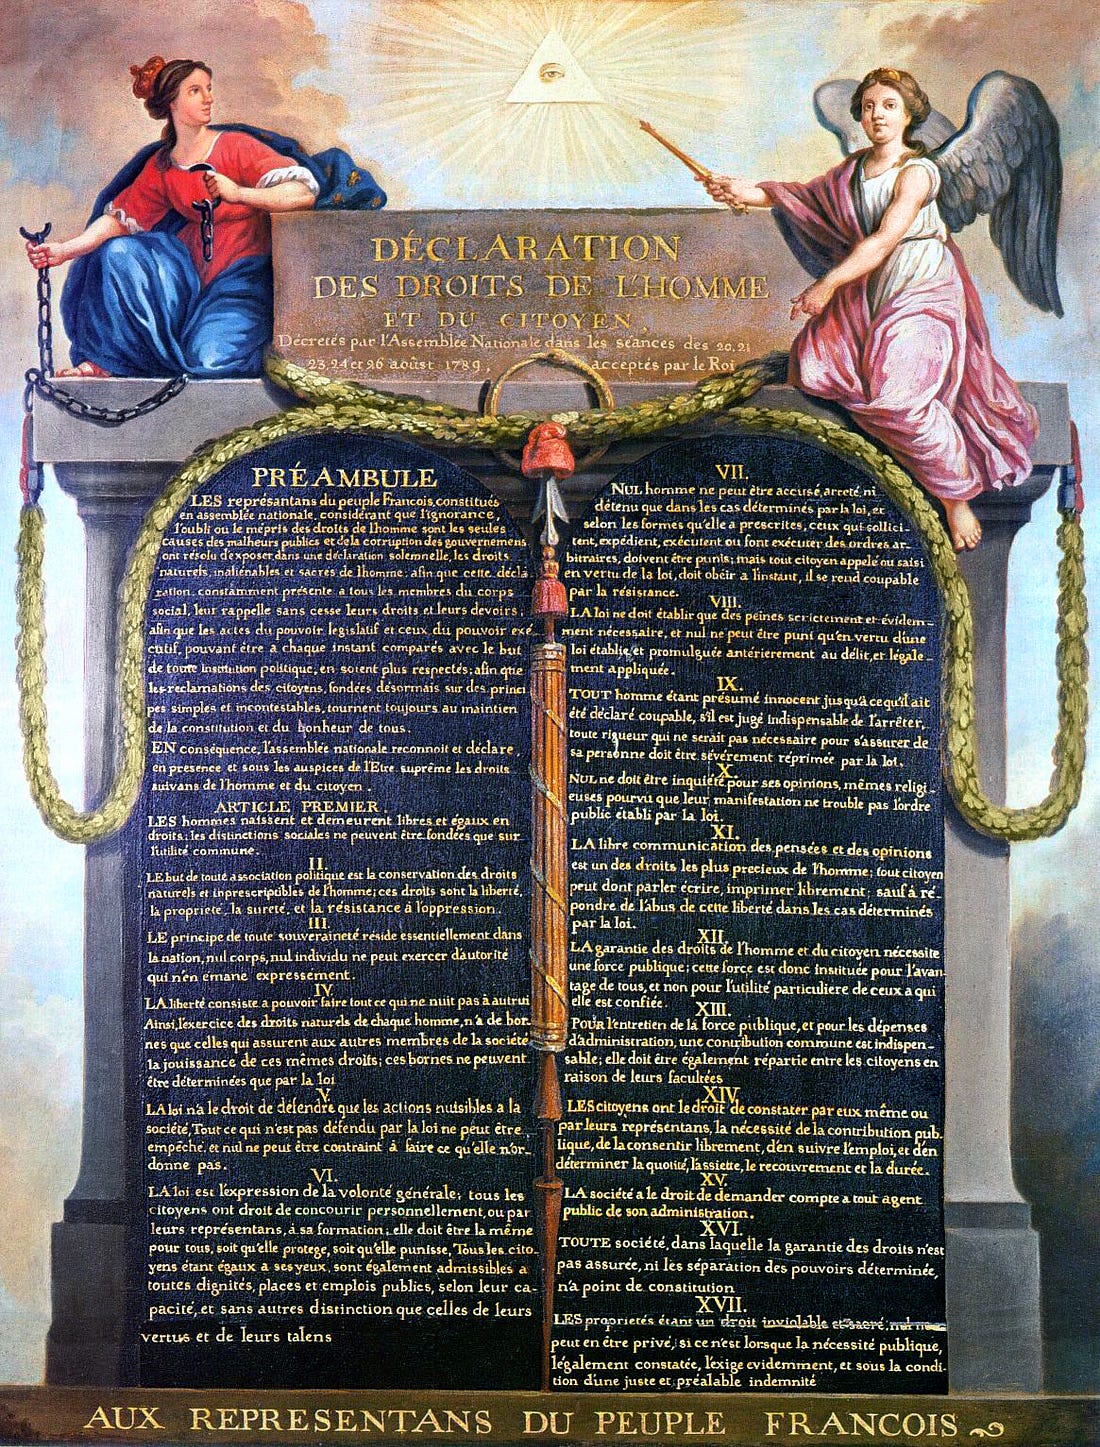 DÉCLARATION
DES DROITS DE L'HOMME
ET DU CITOYEN,
Décretés par l'Assemblée Nationale dans les séances des 20, 21
23, 24 et 26 août 1789, acceptés par le Roi
PRÉAMBULE
LES représantans du peuple Francois, constitués
en assemblée nationale, considérant que l'ignorance,
l'oubli ou le mépris des droits de l'homme sont les seules
causes des malheurs publics et de la corruption des gouvernemens
ont résolu d'exposer dans une déclaration solemnelle, les droits
naturels, inaliénables et sacrés de l'homme; afin que cette décla
ration, constamment présente a tous les membres du corps
social, leur rappelle sans cesse leurs droits et leurs devoirs;
afin que les actes du pouvoir législatif et ceux du pouvoir exé
cutif, pouvant être a chaque instant comparés avec le but
de toute institution politique, en soient plus respectés; afin que
les reclamations des citoyens, fondées désormais sur des princi
pes simples et incontestables, tournent toujours au maintien
de la constitution et du bonheur de tous.
EN conséquence, l'assemblée nationale reconnoit et déclare,
en presence et sous les auspices de l'Etre suprême les droits
suivans de l'homme et du citoyen.
ARTICLE PREMIER.
LES hommes naissent et demeurent libres et égaux en
droits; les distinctions sociales ne peuvent être fondées que sur
l'utilité commune.
II.
LE but de toute association politique est la conservation des droits
naturels et inprescriptibles de l'homme; ces droits sont la liberté,
la propriété, la sureté, et la résistance à l'oppression.
III.
LE principe de toute souveraineté réside essentiellement dans
la nation, nul corps, nul individu ne peut exercer d'autorité
qui n'en emane expressement.
IV.
LA liberté consiste a pouvoir faire tout ce qui ne nuit pas à autrui
Ainsi, l'exercice des droits naturels de chaque homme, n'a de bor-
nes que celles qui assurent aux autres membres de la société
la jouissance de ces mêmes droits; ces bornes ne peuvent
être déterminées que par la loi
V.
LA loi n'a le droit de défendre que les actions nuisibles a la
société, Tout ce qui n'est pas défendu par la loi ne peut être
empêché, et nul ne peut être contraint à faire ce qu'elle n'or-
donne pas.
VI.
LA loi est l'expression de la volonté générale; tous les
citoyens ont droit de concourir personnellement, ou par
leurs représentans, à sa formation; elle doit être la même
pour tous, soit qu'elle protege, soit qu'elle punisse, Tous les cito-
yens étant égaux a ses yeux, sont également admissibles a
toutes dignités, places et emplois publics, selon leur ca-
pacité, et sans autres distinction que celles de leurs
vertus et de leurs talens
VII.
NUL homme ne peut être accusé, arreté, ni
détenu que dans les cas déterminés par la loi, et
selon les formes qu'elle a prescrites, ceux qui sollici-
tent, expédient, exécutent ou font exécuter des ordres ar-
bitraires, doivent être punis; mais tout citoyen appelé ou saisi
en vertu de la loi, doit obéir a l'instant, il se rend coupable
par la résistance.
VIII.
LA loi ne doit établir que des peines strictement et évidem-
ment nécessaire, et nul ne peut être puni qu'en vertu d'une
loi établie, et promulguée antérierement au délit, et légale-
ment appliquée.
IX.
TOUT homme étant présumé innocent jusqu'a ce qu'il ait
été déclaré coupable, s'il est jugé indispensable de l'arrêter,
toute rigueur qui ne serait pas nécessaire pour s'assurer de
sa personne doit être sévèrement réprimée par la loi.
X.
NUL ne doit être inquiété pour ses opinions, mêmes religi-
euses pourvu que leur manifestation ne trouble pas l'ordre
public établi par la loi.
XI.
LA libre communication des pensées et des opinions
est un des droits les plus precieux de l'homme; tout citoyen
peut dont parler écrire, imprimer librement; sauf à ré-
pondre de l'abus de cette liberté dans les cas déterminés
par la loi.
XII.
LA garantie des droits de l'homme et du citoyen nécessite
une force publique; cette force est donc instituée pour l'avan-
tage de tous, et non pour l'utilité particuliere de ceux a qui
elle est confiée.
XIII.
POUR l'entretien de la force publique, et pour les dépenses
d'administration, une contribution commune est indispen-
sable; elle doit être également répartie entre les citoyens en
raison de leurs facultées
XIV.
LES citoyens ont le droit de constater par eux même ou
par leurs représentans, la nécessité de la contribution pub-
lique, de la consentir librement, d'en suivre l'emploi, et d'en
déterminer la quotité, l'assiette, le recouvrement et la durée.
XV.
LA société a le droit de demander compte a tout agent
public de son administration.
XVI.
TOUTE société, dans laquelle la garantie des droits n'est
pas assurée, ni les séparation des pouvoirs déterminée,
n'a point de constitution
XVII.
LES proprietés étant un droit inviolable et sacré, nul ne
peut en être privé, si ce n'est lorsque la nécessité publique,
légalement constatée, l'exige evidemment, et sous la condi-
tion d'une juste et préalable indemnité
AUX REPRESENTANS DU PEUPLE FRANCOIS